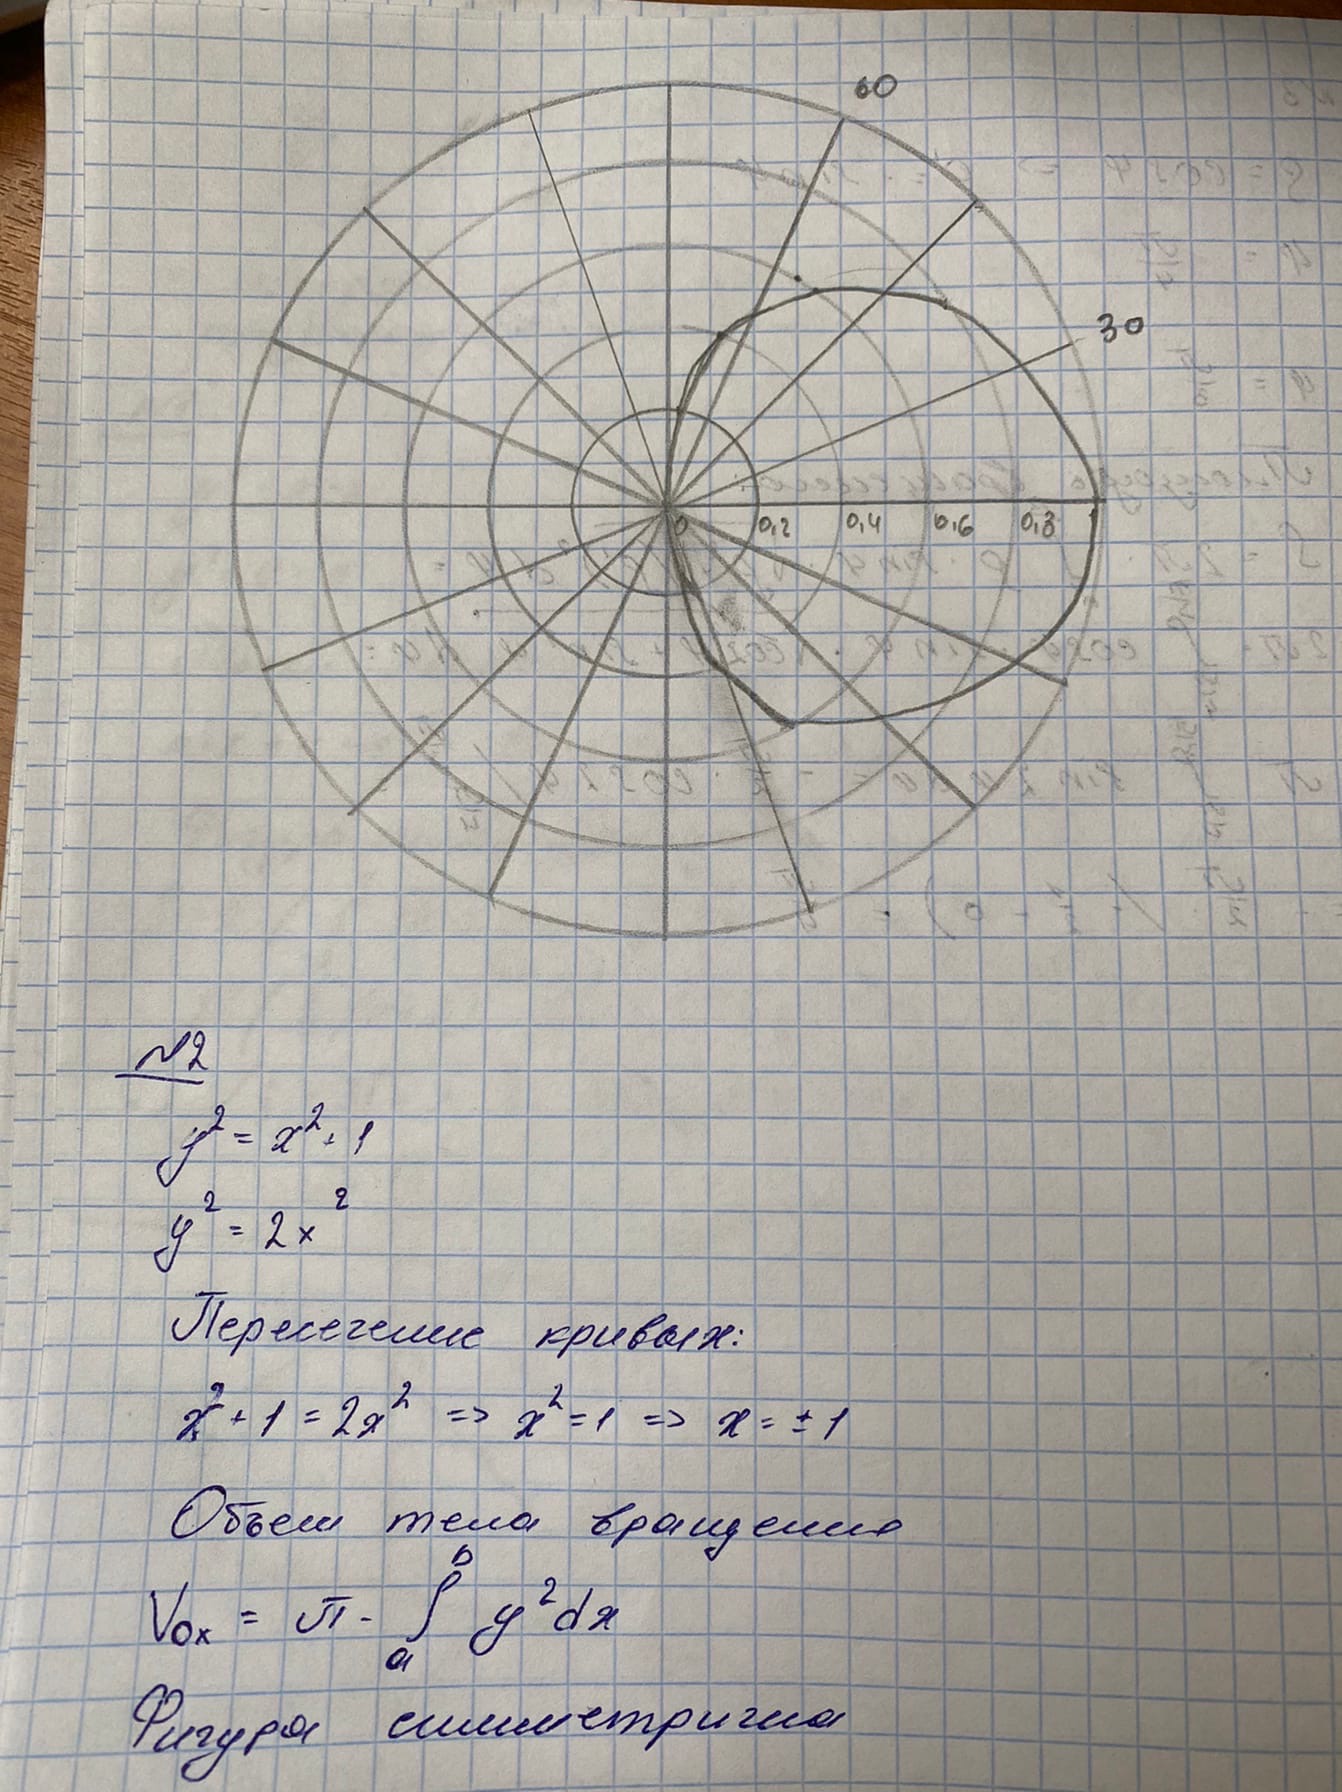 60
30
0 0,2 0,4 0,6 0,8
№2
y² = x² + 1
y² = 2x²
Пересечение кривых:
x² + 1 = 2x² => x² = 1 => x = ± 1
Объем тела вращения
Vox = π · ∫ₐᵇ y² dx
Фигура симметрична